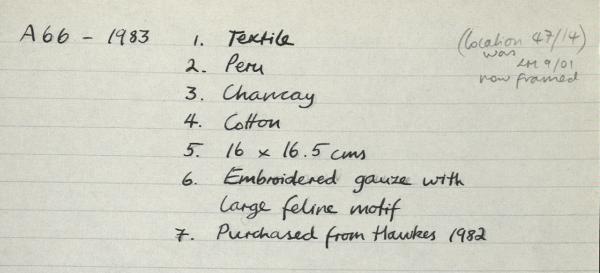 A66 - 1983
1. Textile
2. Peru
3. Chancay
4. Cotton
5. 16 x 16.5 cms
6. Embroidered gauze with
large feline motif
7. Purchased from Hawkes 1982
(location 47/14)
was
LM 9/01
now framed